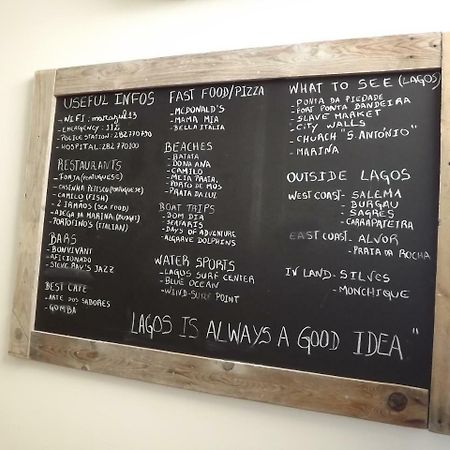 USEFUL INFOS
- EMERGENCY: 112
- POLICE STATION: 282770930
- HOSPITAL: 282770100
RESTAURANTS
(PORTUGUESE)
- CASINHA PETISCO (PORTUGUESE)
- CAMILO (FISH)
- 2 IRMÃOS (SEA FOOD)
- ADEGA DA MARINA (BUDGET)
- PORTOFINO'S (ITALIAN)
BARS
- BONVIVANI
- AFICIONADO
- STEVIE RAY'S JAZZ
BEST CAFE
- ARTE DOS SABORES
- GOMBA
FAST FOOD/PIZZA
- MCDONALD'S
- MAMA MIA
- BELLA ITALIA
BEACHES
- BATATA
- DONA ANA
- CAMILO
- MEIA PRAIA
- PORTO DE MÓS
- PRAIA DA LUZ
BOAT TRIPS
- BOM DIA
- SEAFARIS
- DAYS OF ADVENTURE
- ALGARVE DOLPHINS
WATER SPORTS
- LAGOS SURF CENTER
- BLUE OCEAN
- WIND-SURF POINT
WHAT TO SEE (LAGOS)
- PONTA DA PIEDADE
- FORT PONTA BANDEIRA
- SLAVE MARKET
- CITY WALLS
- CHURCH "S. ANTÓNIO"
- MARINA
OUTSIDE LAGOS
WEST COAST - SALEMA
- BURGAU
- SAGRES
- CARRAPATEIRA
EAST COAST - ALVOR
- PRAIA DA ROCHA
IN LAND - SILVES
- MONCHIQUE
LAGOS IS ALWAYS A GOOD IDEA"